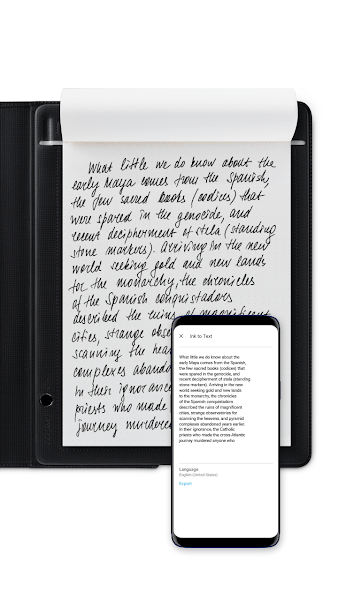 What little we do know about the
early Maya comes from the Spanish,
the few sacred books (codices) that
were spared in the genocide, and
recent decipherment of stela (standing
stone markers). Arriving in the new
world seeking gold and new lands
for the monarchy, the chronicles
of the Spanish conquistadors
described the ruins of magnificent
cities, strange obse
scanning the hea
complexes abando
in their ignoranc
priests who made
journey murdered
Ink to Text
What little we do know about the
early Maya comes from the Spanish,
the few sacred books (codices) that
were spared in the genocide, and
recent decipherment of stela (standing
stone markers). Arriving in the new
world seeking gold and new lands
to the monarchy, the chronicles
of the Spanish conquistadors
described the ruins of magnificent
cities, strange observatories for
scanning the heavens, and pyramid
complexes abandoned years earlier.
In their ignorance, the Catholic
priests who made the cross Atlantic
journey murdered anyone who
Language
English (United States)
Export